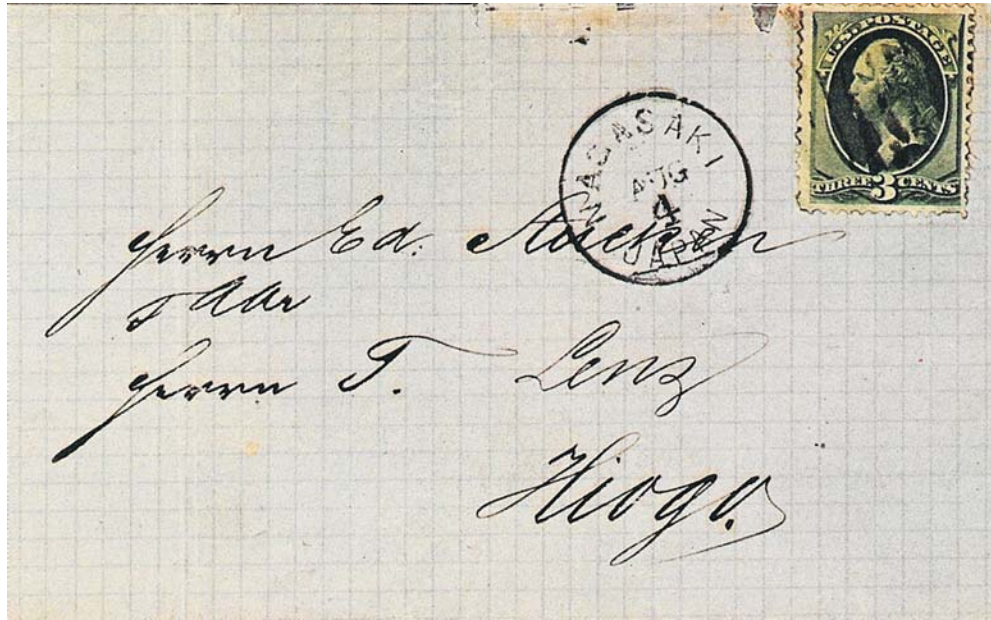 U.S. POSTAGE
THREE 3 CENTS
NAGASAKI
AUG
4
JAPAN
Herrn Ed.
Herrn T. Lenz
Hiogo.